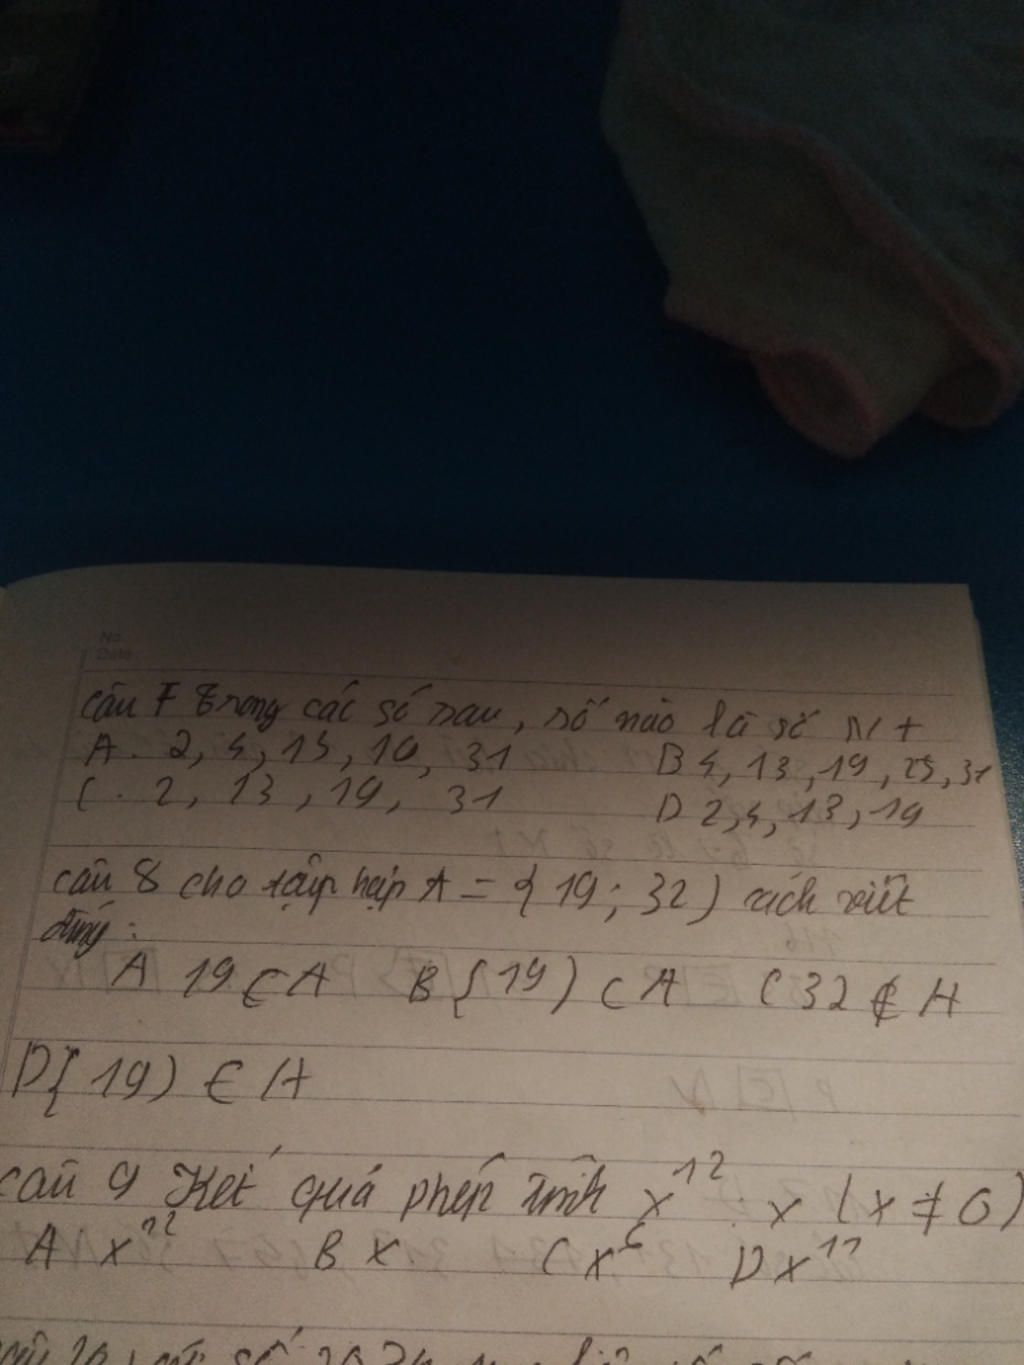 No.
Date
Câu 7 Trong các số sau, số nào là số Nt
A. 2, 5, 13, 19, 31 B 5, 13, 19, 25, 31
C. 2, 13, 19, 31 D 2, 5, 13, 19
câu 8 cho tập hợp A = {19; 32) cách viết
đúng:
A 19 ⊂ A B {19) ⊂ A C 32 ∉ A
D {19) ∈ A
câu 9 Kết quả phép tính x¹² : x (x ≠ 0)
A x¹² B x C x⁶ D x¹¹